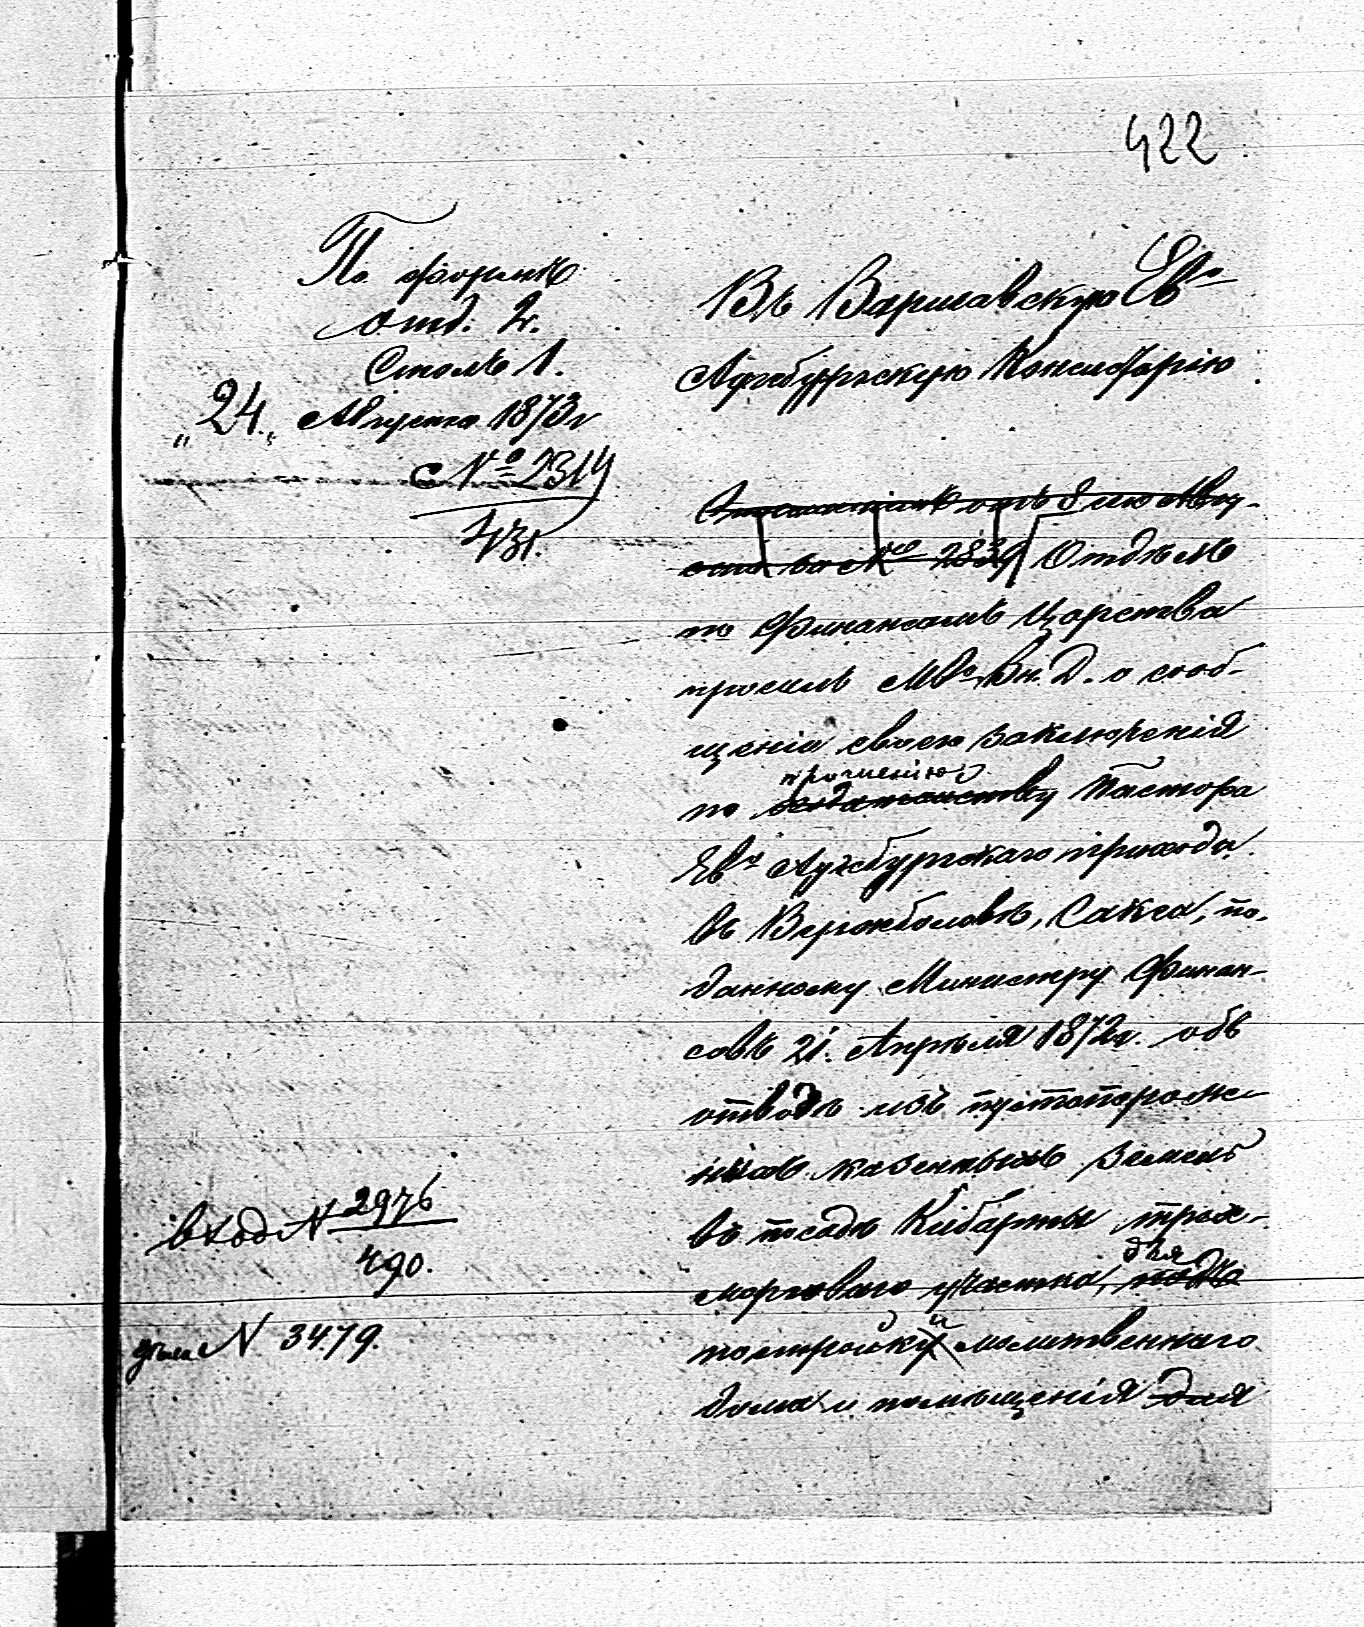 422
По формѣ
Отд. 2.
Столъ 1.
"24" Августа 1873 г
№ 2314
431.
Въ Варшавскую Ев-
Аугсбургскую Консисторію
отъ 8 сего Авгу-
ста за № 2839 Отдѣлъ
по Финансамъ Царства
просилъ М-ва Вн. Д. о сооб-
щеніи своего заключенія
прошенію
по ходатайству Пастора
Ев- Аугсбургскаго прихода
въ Вержболовѣ, Сакса, по-
данному Министру Финан-
совъ 21. Апрѣля 1872 г. объ
отводѣ изъ пустопорож-
нихъ казенныхъ земель
въ посадѣ Кибарты трех-
для
морговаго участка, подъ
и
постройку молитвеннаго
дома и помѣщенія для
вход № 2976
490.
№ 3479.